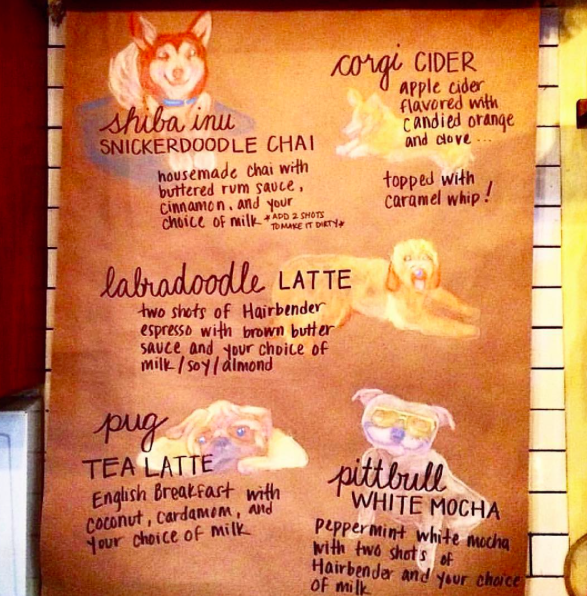 shiba inu
SNICKERDOODLE CHAI
housemade chai with
buttered rum sauce,
cinnamon, and your
choice of milk *ADD 2 SHOTS
TO MAKE IT DIRTY*
corgi CIDER
apple cider
flavored with
candied orange
and clove...
topped with
caramel whip!
labradoodle LATTE
two shots of Hairbender
espresso with brown butter
sauce and your choice of
milk/soy/almond
pug
TEA LATTE
English Breakfast with
coconut, cardamom, and
your choice of milk
pittbull
WHITE MOCHA
peppermint white mocha
with two shots of
Hairbender and your choice
of milk